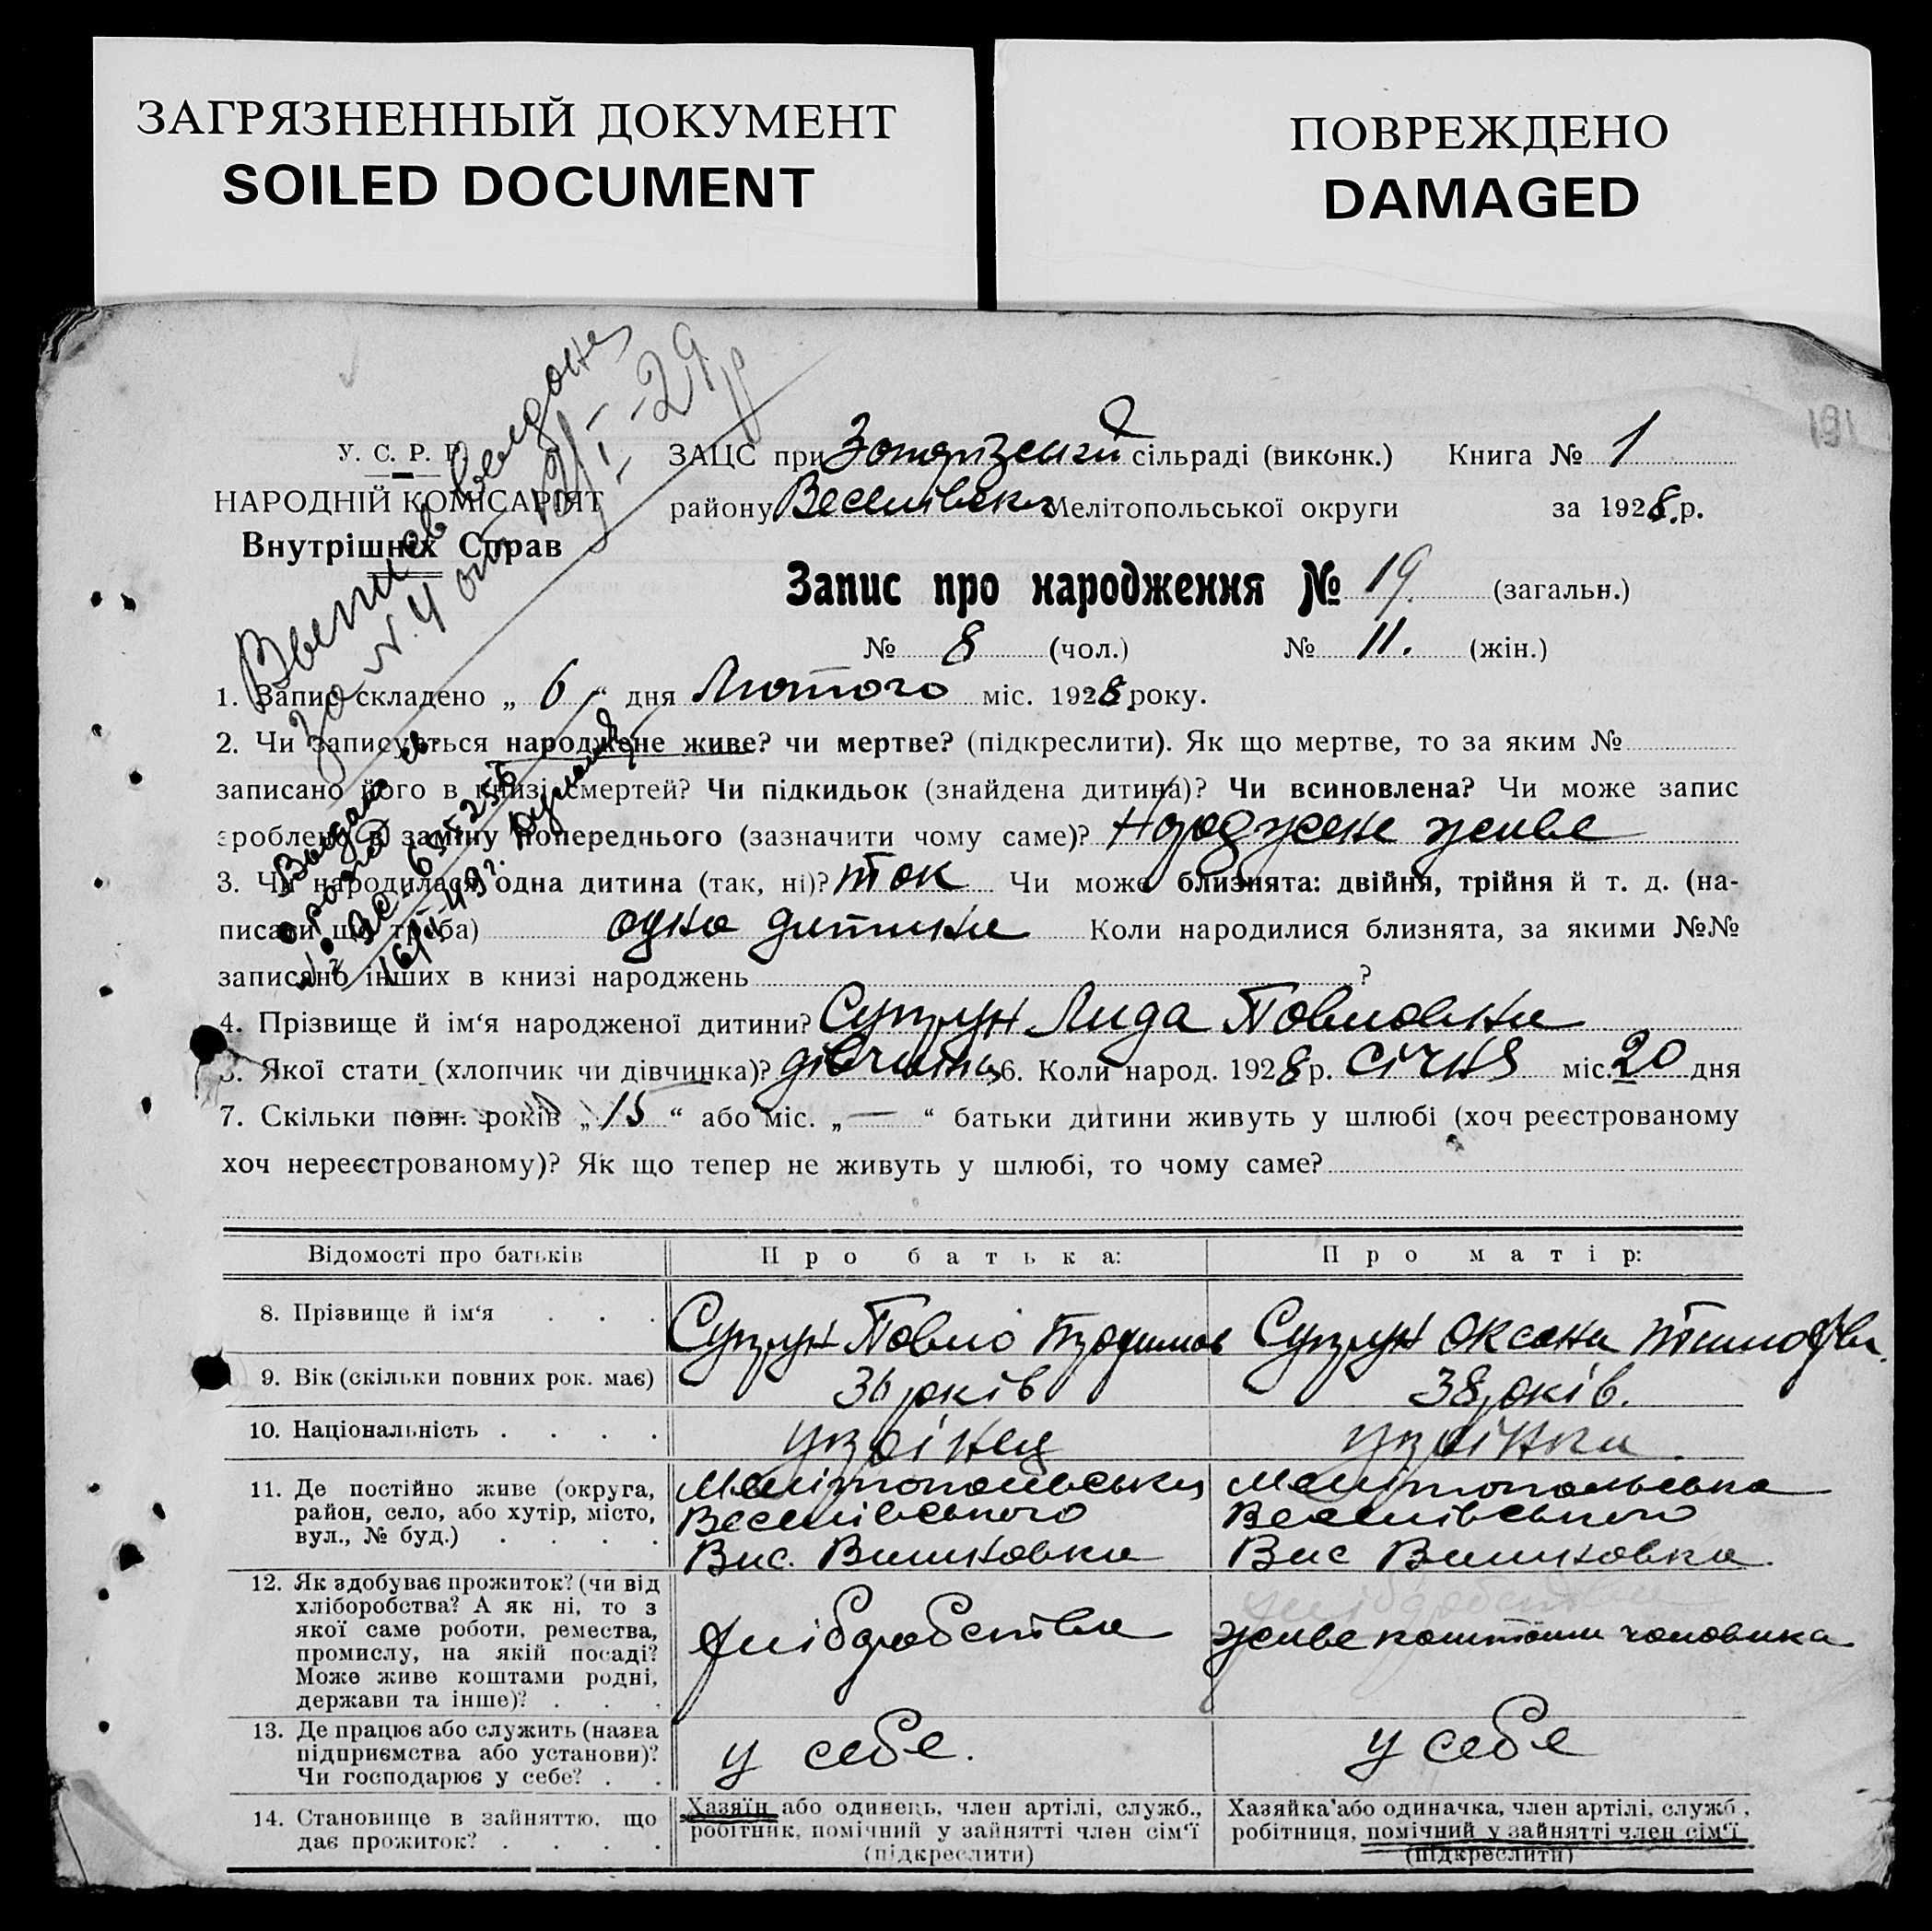 ЗАГРЯЗНЕННЫЙ ДОКУМЕНТ
SOILED DOCUMENT
ПОВРЕЖДЕНО
DAMAGED
191
У. С. Р. Р.
НАРОДНІЙ КОМІСАРІЯТ
Внутрішніх Справ
ЗАЦС при сільраді (виконк.) Книга № 1
району Веселівськ Мелітопольської округи за 1928 р.
Запис про народження № 19. (загальн.)
№ 8 (чол.) № 11. (жін.)
1. Запис складено „ 6 “ дня Лютого міс. 1928 року.
2. Чи записується народжене живе? чи мертве? (підкреслити). Як що мертве, то за яким №
записано його в книзі смертей? Чи підкидьок (знайдена дитина)? Чи всиновлена? Чи може запис
зроблено в заміну попереднього (зазначити чому саме)? Народжене живе
3. Чи народилася одна дитина (так, ні)? так Чи може близнята: двійня, трійня й т. д. (на-
писати що треба) одна дитина Коли народилися близнята, за якими №№
записано інших в книзі народжень ?
4. Прізвище й ім‘я народженої дитини? Супрун Лида Павловна
5. Якої стати (хлопчик чи дівчинка)? дівчинка 6. Коли народ. 1928 р. січня міс. 20 дня
7. Скільки повн. років „ 15 “ або міс. „ — “ батьки дитини живуть у шлюбі (хоч реєстрованому
хоч нереєстрованому)? Як що тепер не живуть у шлюбі, то чому саме?
Відомості про батьків Про батька: Про матір:
8. Прізвище й ім‘я . . . Супрун Павло Супрун Оксана
9. Вік (скільки повних рок. має) 36 років 38 років.
10. Національність . . . . украінец украінка
11. Де постійно живе (округа, район, село, або хутір, місто, вул., № буд.) . . . .
Мелітопольська Мелітопольська
Веселівського Веселівського
Вис. Вис
12. Як здобуває прожиток? (чи від хліборобства? А як ні, то з якої саме роботи, ремества, промислу, на якій посаді? Може живе коштами родні, держави та інше)? . . .
хліборобства живе коштами чоловіка
13. Де працює або служить (назва підприємства або установи)? Чи господарює у себе? . .
у себе. у себе
14. Становище в зайняттю, що дає прожиток? . . . .
Хазяїн або одинець, член артілі, служб., робітник, помічний у зайнятті член сім‘ї (підкреслити)
Хазяйка або одиначка, член артілі, служб., робітниця, помічний у зайнятті член сім‘ї (підкреслити)